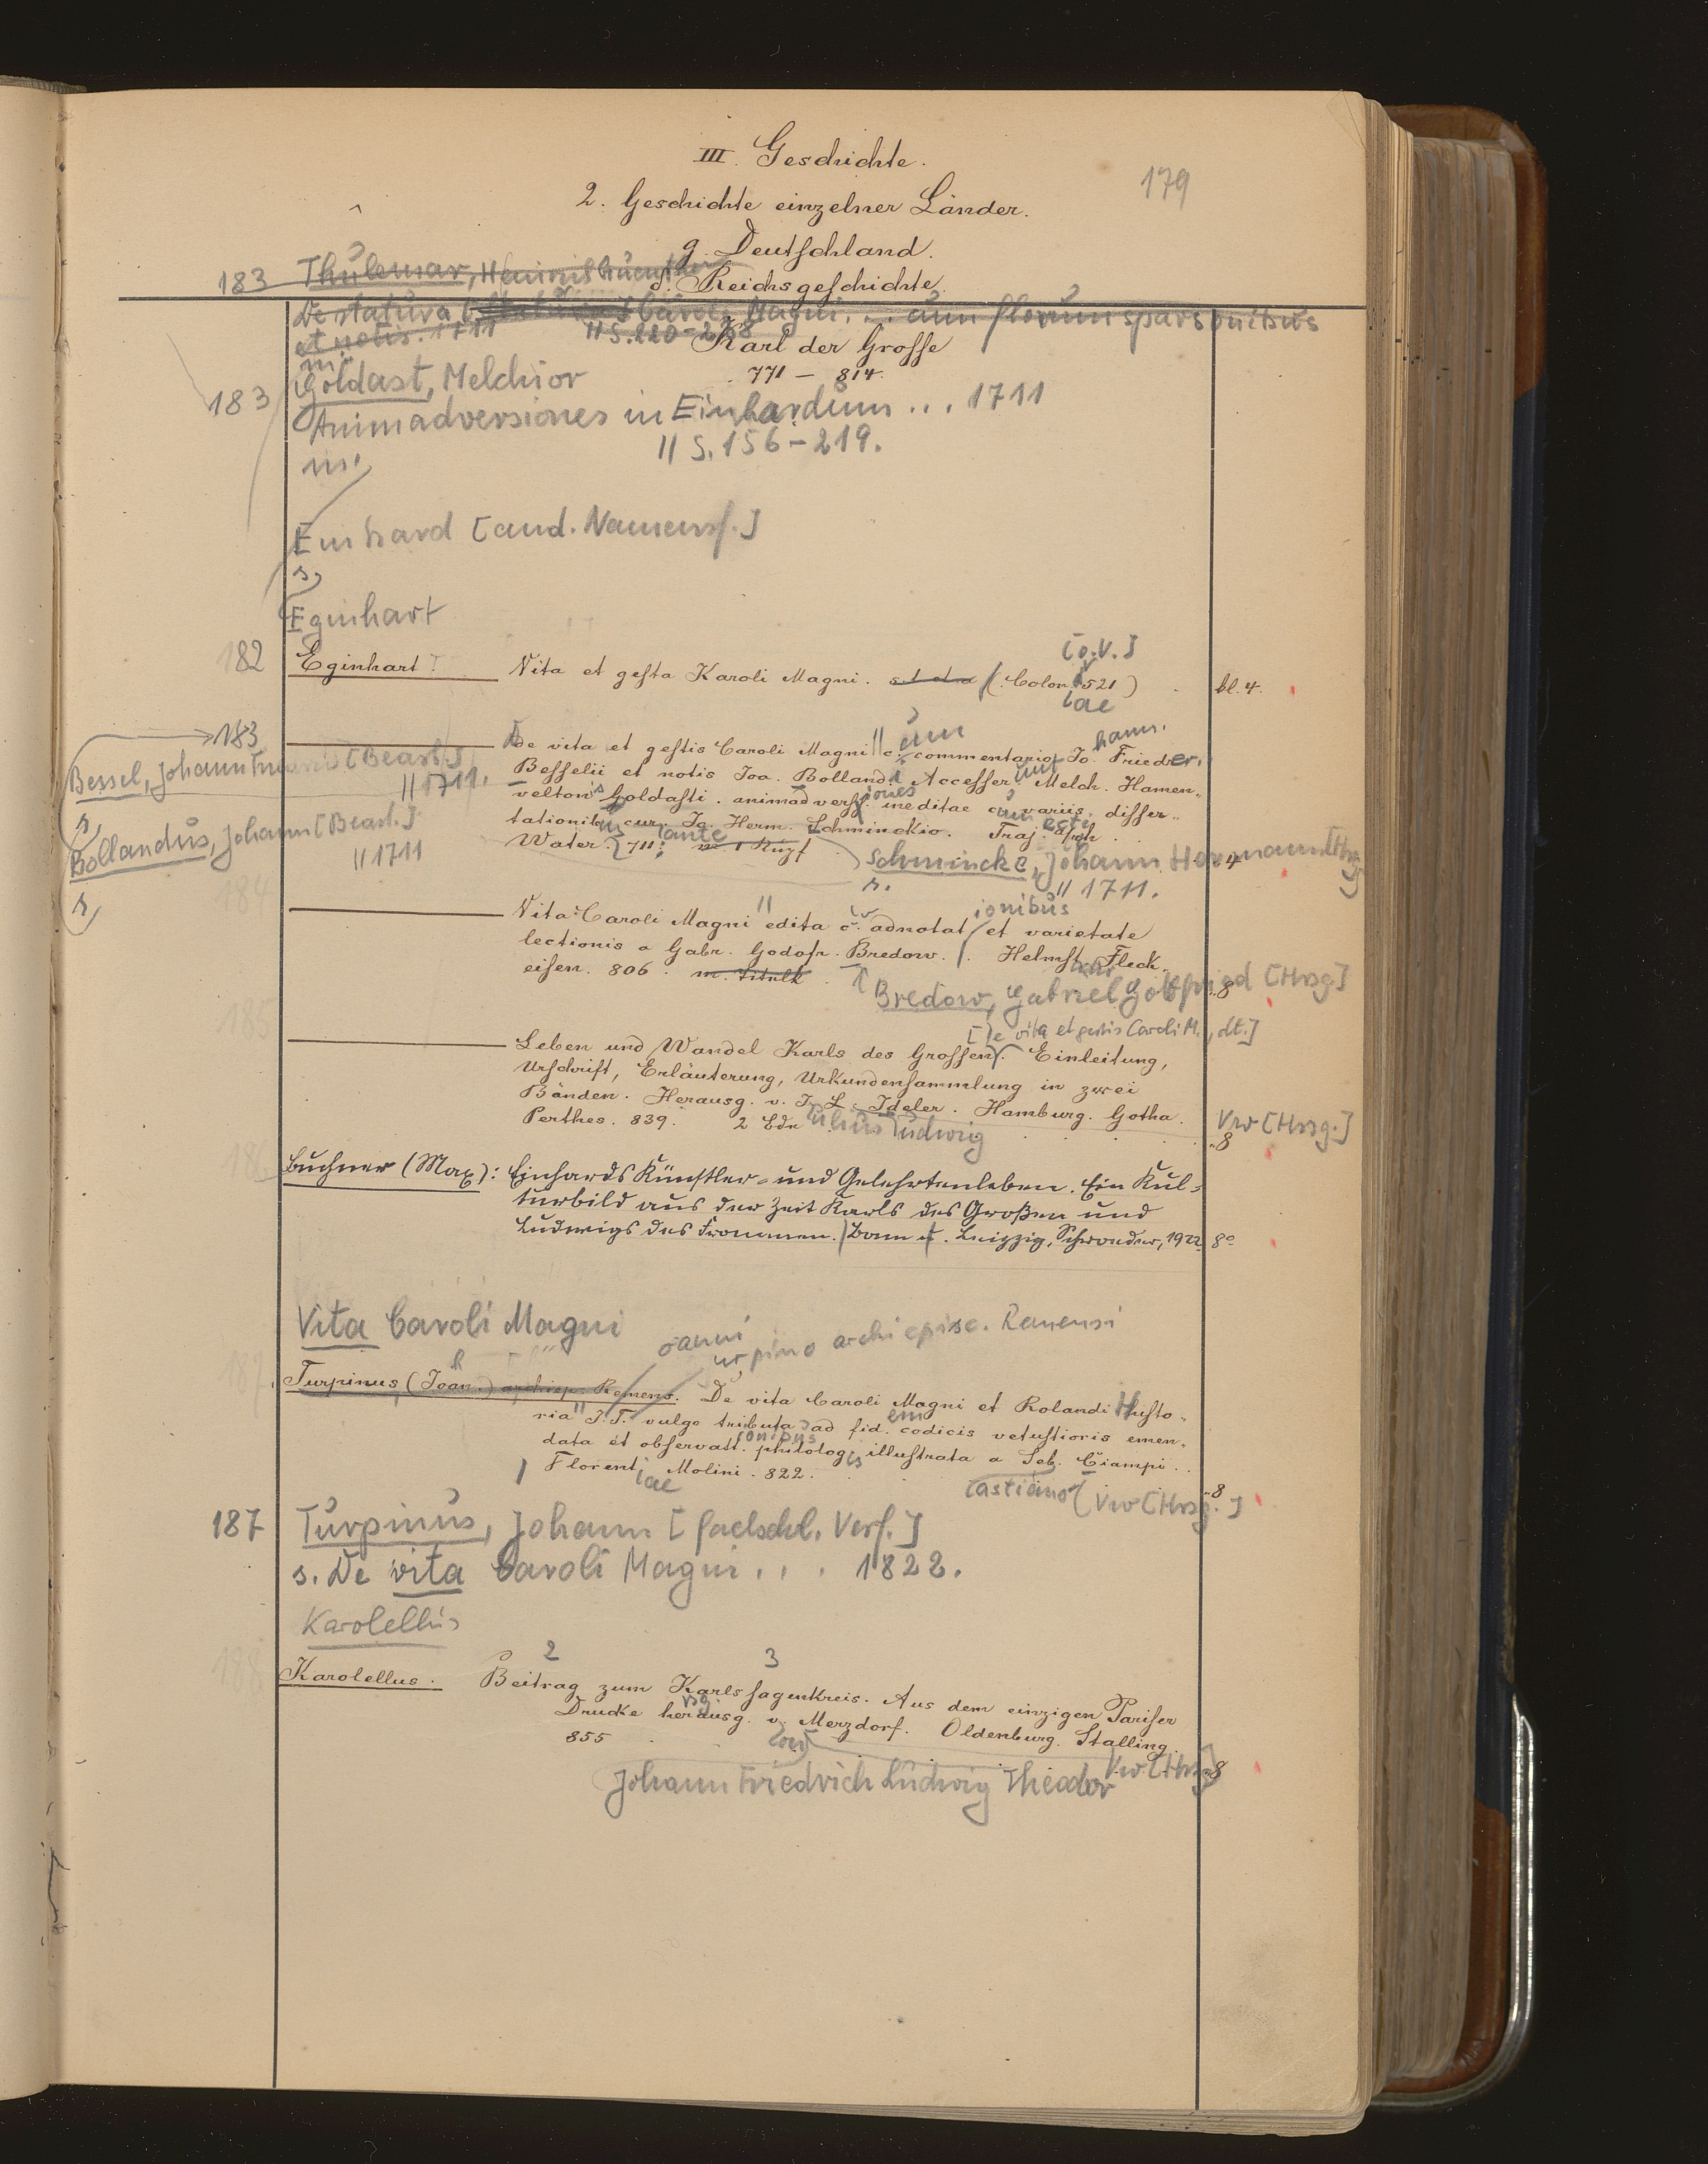 III. Geschichte.
179
2. Geschichte einzelner Länder.
g. Deutschland.
183 Thülemar,
d. Reichsgeschichte.
De statura Caroli Magni ... cum florum sparsionibus
et notis. 1711 // S. 220-268
Karl der Grosse
771 — 814.
183 Goldast, Melchior
Animadversiones in Einhardum ... 1711
// S. 156-219.
in:
Einhard [and. Namensf.]
s.
Eginhart
[o.V.]
182 Eginhart Vita et gesta Karoli Magni. (Colon. 521) bl. 4.
iae
183
De vita et gestis Caroli Magni // c. commentario Jo. Frieder.
um hann.
Bessel, Johann [Bearb.]
// 1711.
s.
Besselii et notis Joa. Bollandi. Accesser. Melch. Hamen-
veltonis Goldasti. animadverss. ineditae cu variis. disser-
Bollandus, Johann [Bearb.]
// 1711
s.
tationib. cur. Jo. Herm. Schminckio. Traj. ad Rh.
Water. 711. m. 1 Kupf
Schmincke, Johann Hermann [Hrsg.] 4
s. // 1711.
184
Vita Caroli Magni // edita c. adnotat et varietate
ionibus
lectionis a Gabr. Godofr. Bredow. Helmst. Fleck-
eisen. 806. m. Titelk.
Bredow, Gabriel Gottfried [Hrsg] „8
185
[De vita et gestis Caroli M., dt.]
Leben und Wandel Karls des Grossen. Einleitung,
Urschrift, Erläuterung, Urkundensammlung in zwei
Bänden. Herausg. v. J. L. Ideler. Hamburg. Gotha.
Perthes. 839. 2 Bde
ulius Ludwig
Vw [Hrsg.]
„8
186
Buchner (Max): Einhards Künstler- und Gelehrtenleben. Ein Kul-
turbild aus der Zeit Karls des Großen und
Ludwigs des Frommen. Bonn u. Leipzig, Schroeder, 1922 8°
Vita Caroli Magni
oanni
urpino archiepisc. Remensi
187. Turpinus, (Joan.) archiep. Remens. De vita Caroli Magni et Rolandi Histo-
ria // J. T. vulgo tributa ad fid. codicis vetustioris emen-
em
data et observatt. philolog. illustrata a Seb. Ciampi.
ionibus is
Florent. Molini. 822.
iae
astiano Vw [Hrsg.] „8
187 Turpinus, Johann [faelschl. Verf.]
s. De vita Caroli Magni ... 1822.
Karolellus
2 3
188 Karolellus. Beitrag zum Karlssagenkreis. Aus dem einzigen Pariser
Drucke herausg. v. Merzdorf. Oldenburg. Stalling.
855
Vw [Hrsg] „8
Johann Friedrich Ludwig Theodor